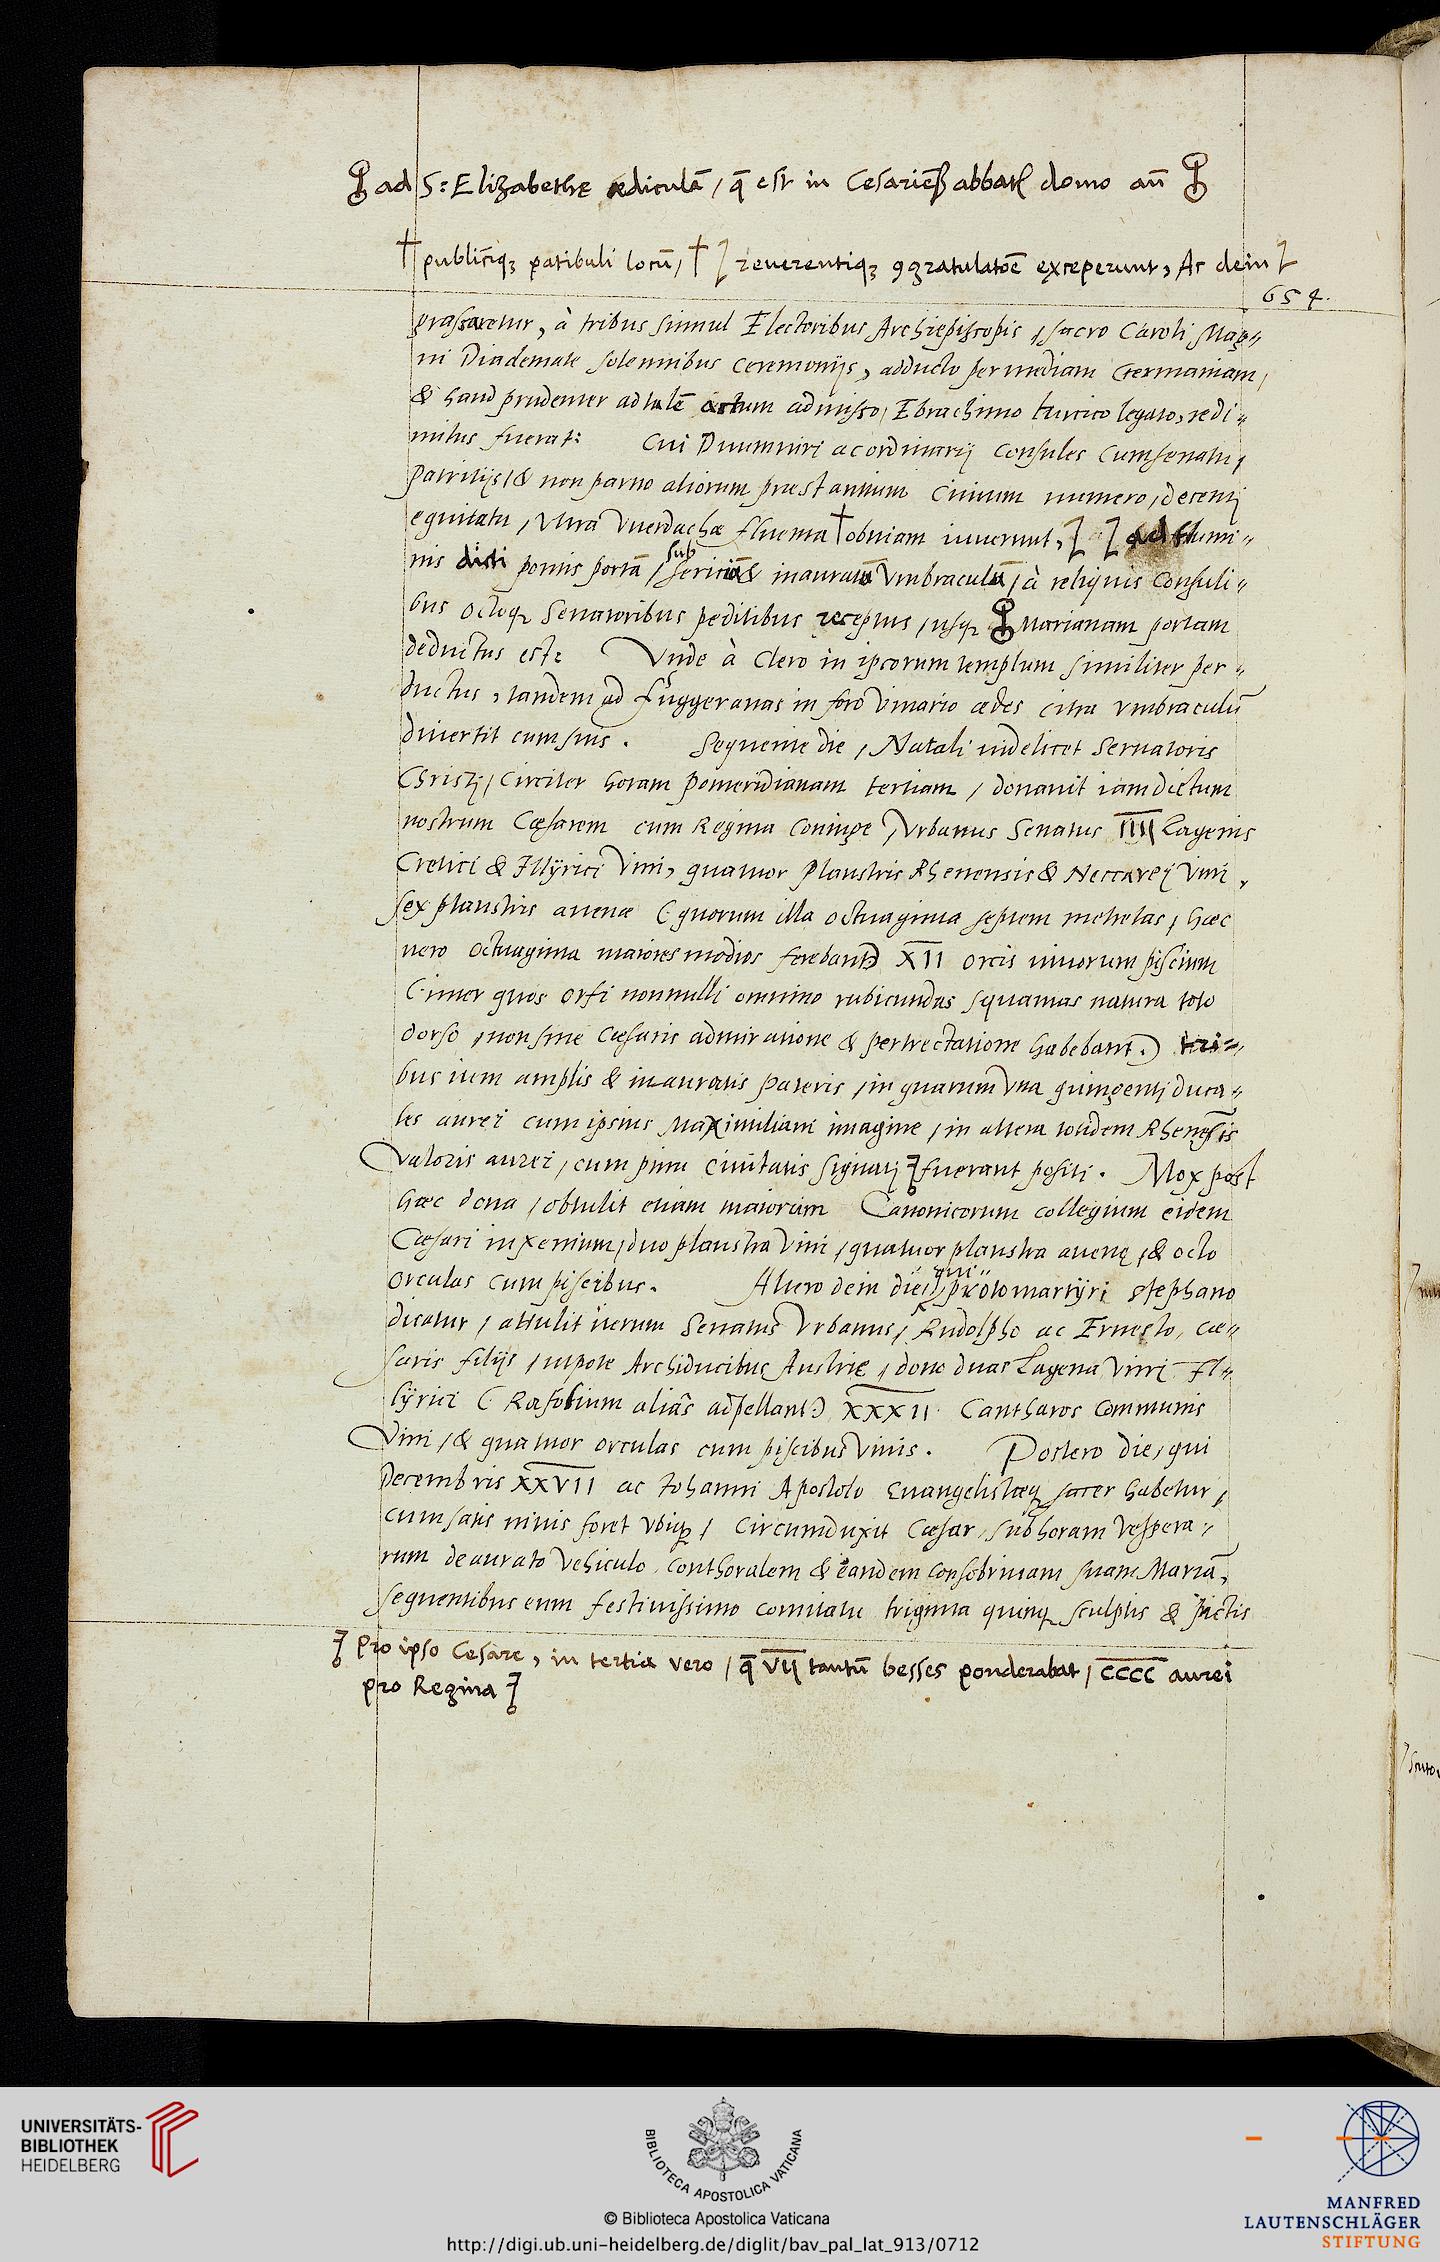 ad S: Elizabethę ædiculā, q̄ est in Cesarieñ abbat domo añ
† publicīq; patibuli locū, † reuerentiq; ꝯgratulatōe exceperunt, Ac dein
654.
grassaretur, à tribus simul Electoribus Archiepiscopis, sacro Caroli Mag-
ni Diademate solennibus ceremonijs, adducto per mediam Germaniam,
& haud prudenter ad talē actum admisso, Ebrachimo turcico legato, redi-
mitus fuerat: Cui Duumuiri ac ordinarij Consules cum senatu,
Patritijs, & non paruo aliorum præstantium Ciuium numero, decenti
equitatu, Vltra Vuerdachæ fluenta † obuiam iuuerunt, ad flumi-
nis dicti pontis portā, sub sericiū & inauratū Vmbraculū, à reliquis Consuli-
bus octoq; Senatoribus peditibus receptus, usq; Marianam portam
deductus est: Vnde à Clero in ipsorum templum similiter per-
ductus, tandem ad Fuggeranas in foro Vinario ædes citra vmbraculū
diuertit cum suis. Sequente die, Natali uidelicet Seruatoris
Christi, Circiter horam pomeridianam tertiam, donauit iam dictum
nostrum Cæsarem cum Regina coniuge, Vrbanus Senatus IIII Lagenis
Cretici & Illÿrici Vini, quatuor Plaustris Rhenensis & Neccarei Vini,
sex plaustris auenæ (quorum illa octuaginta septem metretas, hæc
uero octuaginta maiores modios ferebant) XII orcis uiuorum piscium
(inter quos orfi nonnulli omnino rubicundas squamas natura toto
dorso, non sine Cæsaris admiratione & pertrectatione habebant.) tri-
bus item amplis & inauratis pateris, in quarum Vna quingenti duca-
tes aurei cum ipsius Maximiliani imagine, in altera totidem Rhenēsis
Valoris aurei, cum pinu ciuitatis signati fuerant positi. Mox post
hæc dona, obtulit etiam maiorum Canonicorum collegium eidem
Cæsari in xenium, duo plaustra Vini, quatuor plaustra auenę, & octo
orculas cum piscibus. Altero dein die, qui protomartÿri Stephano
dicatur, attulit iterum Senatus Vrbanus, Rudolpho ac Ernesto, Cæ-
saris filijs, utpote Archiducibus Austrię, dono duas Lagena Vini Il-
lÿrici (Rœfolium aliās adpellant) XXXII Cantharos communis
Vini, & quatuor orculas cum piscibus viuis. Postero die, qui
Decembris XXVII ac Iohanni Apostolo Euangelistæq; sacer habetur,
cum satis niuis foret vbiq; Circumduxit Cæsar, sub horam Vespera-
rum deaurato Vehiculo, conthoralem & eandem consobrinam suam Mariā,
sequentibus eum festiuissimo comitatu triginta quinq; sculptis & pictis
pro ipso Cesare, in tertia vero, q̄ VII tantū besses ponderabat, CCCC aurei
pro Regina
UNIVERSITÄTS-
BIBLIOTHEK
HEIDELBERG
BIBLIOTECA APOSTOLICA VATICANA
© Biblioteca Apostolica Vaticana
http://digi.ub.uni-heidelberg.de/diglit/bav_pal_lat_913/0712
MANFRED
LAUTENSCHLÄGER
STIFTUNG